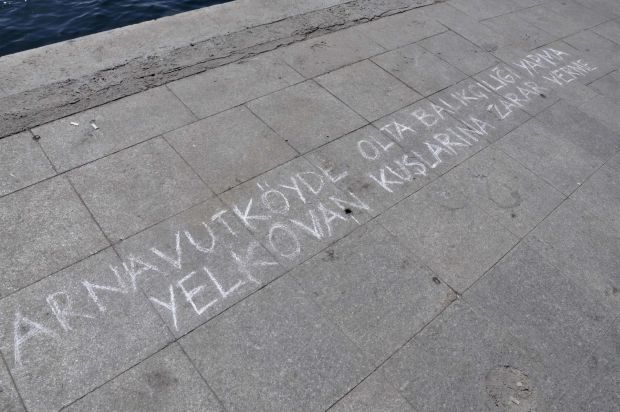 ARNAVUTKÖYDE OLTA BALIKÇILIĞI YAPMA
YELKOVAN KUŞLARINA ZARAR VERME